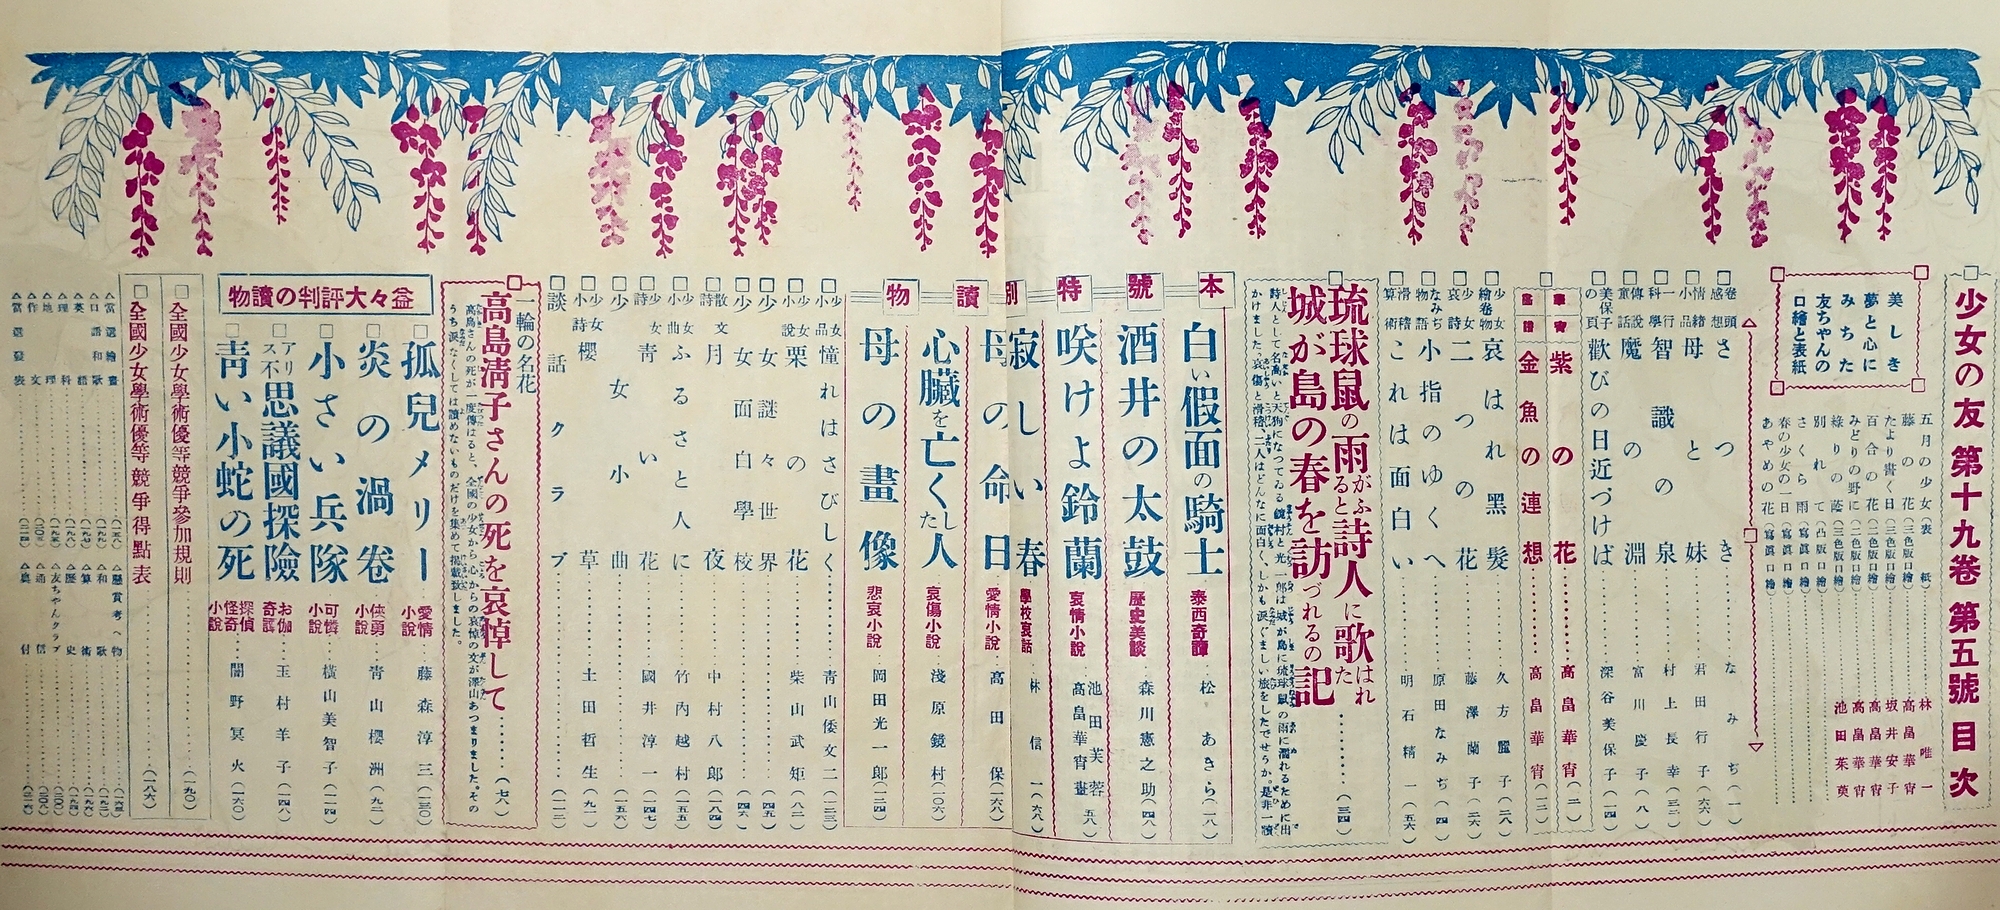 少女の友 第十九卷 第五號 目次
美しき
夢と心に
みちた
友ちやんの
口繪と表紙
五月の少女(表紙)……林唯一
藤の花(三色版口繪)……高畠華宵
たより書く日(三色版口繪)……坂井安子
百合の花(三色版口繪)……高畠華宵
みどりの野に(三色版口繪)……高畠華宵
綠りの蔭(二色版口繪)……池田茱萸
別れて(凸版口繪)
さくら雨(寫眞口繪)
春の少女の一日(寫眞口繪)
あやめの花(寫眞口繪)
卷頭感想 さつき……なみぢ(一)
情緒小品 母と妹……君田行子(六六)
一行科學 智識の泉……村上長幸(三三)
傳說童話 魔の淵……富川慶子(八)
美保子の頁 歡びの日近づけば……深谷美保子(一四)
華宵 紫の花……高畠華宵(二)
畫譜 金魚の連想……高畠華宵(一二)
少女繪卷物 哀はれ黑髮……久方麗子(二八)
少女哀詩 二つの花……藤澤蘭子(二六)
なみぢ物語 小指のゆくへ……原田なみぢ(四)
滑稽算術 これは面白い……明石精一(五六)
琉球鼠の雨がふると詩人に歌はれた
城が島の春を訪づれるの記……(三四)
詩人として名高いと天狗になつてゐる鏡村と光一郎は城が島に琉球鼠の雨に濡れるために出
かけました、哀傷と滑稽、二人はどんなに面白く、しかも淚ぐましい旅をしたでせうか。是非一讀
本號特別讀物
白い假面の騎士 泰西奇譚 松あきら(一八)
酒井の太鼓 歷史美談 森川憲之助(四八)
咲けよ鈴蘭 哀情小說 池田芙蓉 高畠華宵畫(五八)
寂しい春 學校哀話 林信一(六八)
母の命日 愛情小說 高田保(一六八)
心臟を亡くした人 哀傷小說 淺原鏡村(一〇六)
母の畫像 悲哀小說 岡田光一郎(一二四)
少女小品 憧れはさびしく……青山倭文二(一三三)
少女小說 栗の花……柴山武矩(八二)
少女謎々世界……(四五)
少女面白學校……(四六)
散文詩 月夜……中村八郎(一四八)
少女小曲 ふるさと人に……竹內越村(一五五)
少女詩 青い花……國井淳一(一四七)
少女小曲……(一五六)
少女小詩 櫻草……土田哲生(九一)
談話クラブ……(一一二)
一輪の名花
高島淸子さんの死を哀悼して……(七八)
高島さんの死が一度傳はると、全國の少女から心からの哀悼の文が澤山あつまりました。その
うち淚なくしては讀めないものだけを集めて揭載致しました。
益々大評判の讀物
孤兒メリー 愛情小說 藤森淳三(一三〇)
炎の渦卷 俠勇小說 青山櫻洲(九二)
小さい兵隊 可憐小說 橫山美智子(一一四)
アリス不思議國探險 お伽奇譚 玉村羊子(一四八)
靑い小蛇の死 探偵怪奇小說 闇野冥火(一六〇)
全國少女學術優等競爭參加規則……(一九〇)
全國少女學術優等競爭得點表……(一八六)
△當選繪畫……(一五八)
△口語和歌
△英語……(一九七)
△理科……(一九八)
△地理……(一九五)
△作文……(二〇〇)
△當選發表
△懸賞考へ物
△和歌
△算術
△歷史
△友ちやんクラブ
△通信
△奧付